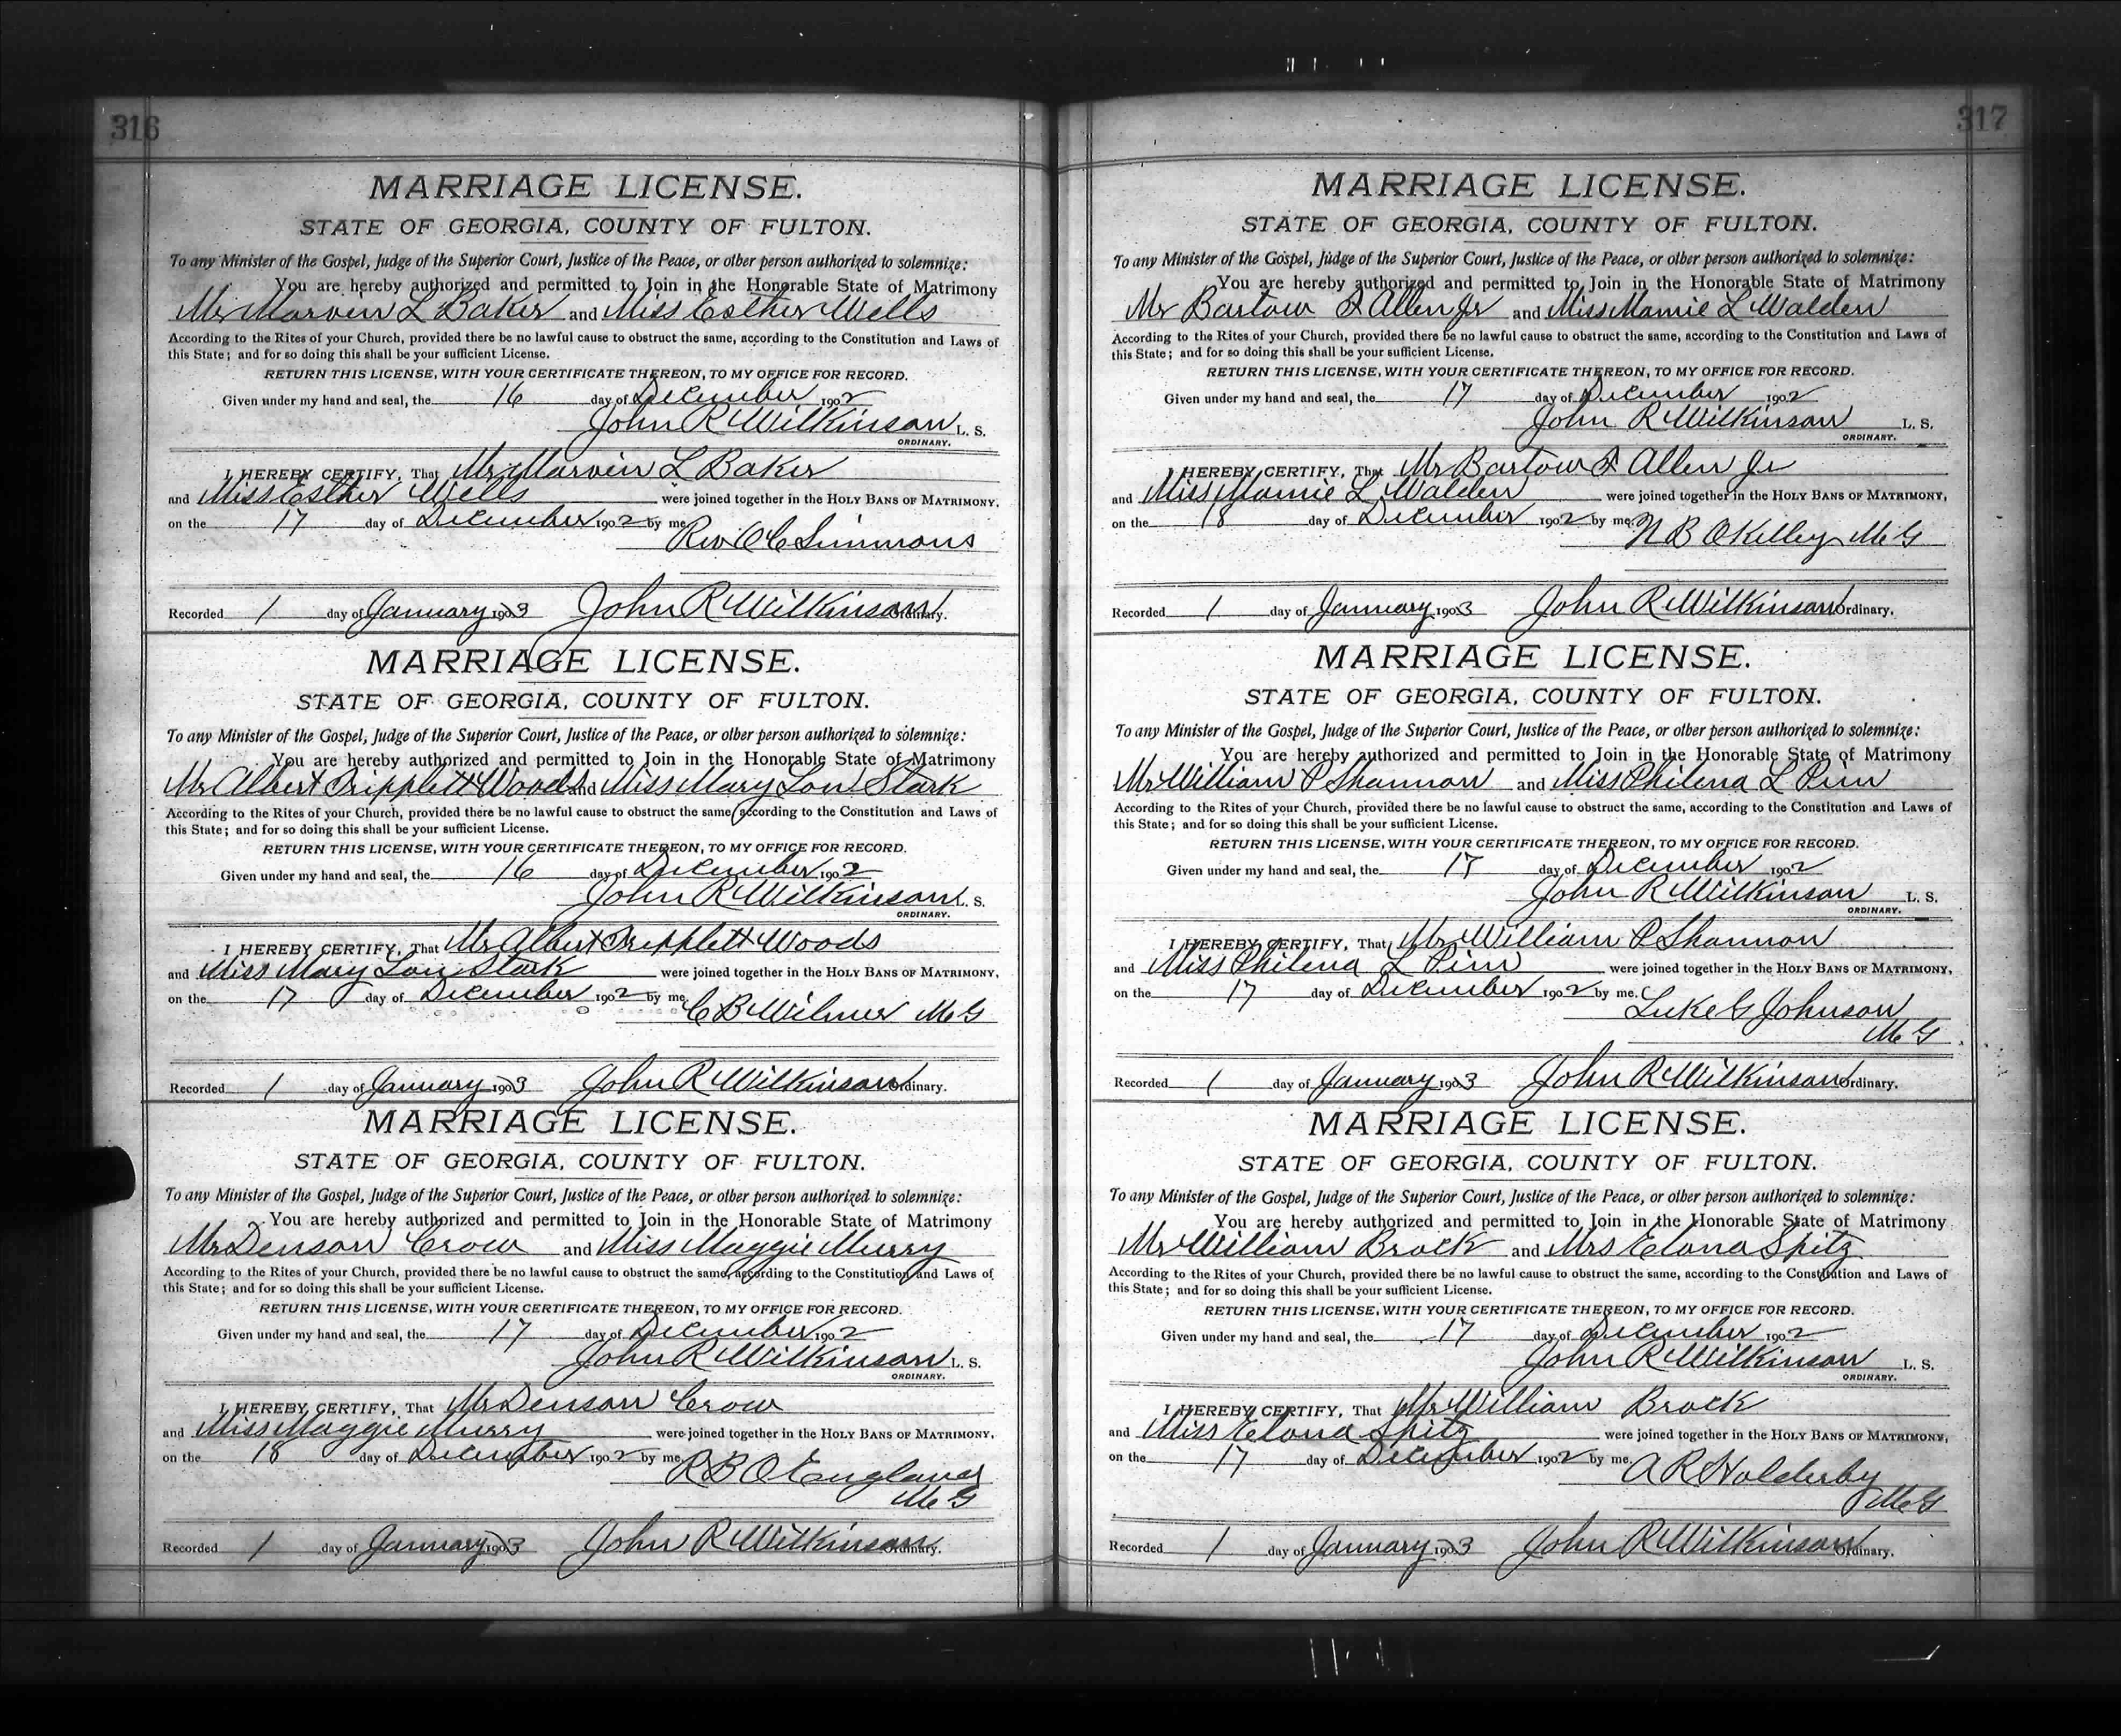 316
MARRIAGE LICENSE.
STATE OF GEORGIA, COUNTY OF FULTON.
To any Minister of the Gospel, Judge of the Superior Court, Justice of the Peace, or other person authorized to solemnize:
You are hereby authorized and permitted to Join in the Honorable State of Matrimony
Mr Marvin L Baker and Miss Esther Wells
According to the Rites of your Church, provided there be no lawful cause to obstruct the same, according to the Constitution and Laws of
this State; and for so doing this shall be your sufficient License.
RETURN THIS LICENSE, WITH YOUR CERTIFICATE THEREON, TO MY OFFICE FOR RECORD.
Given under my hand and seal, the 16 day of December 1902
John R Wilkinson L. S.
ORDINARY.
I HEREBY CERTIFY, That Mr Marvin L Baker
and Miss Esther Wells were joined together in the HOLY BANS OF MATRIMONY,
on the 17 day of December 1902 by me
Rev O C Simmons
Recorded 1 day of January 1903 John R Wilkinson Ordinary.
MARRIAGE LICENSE.
STATE OF GEORGIA, COUNTY OF FULTON.
To any Minister of the Gospel, Judge of the Superior Court, Justice of the Peace, or other person authorized to solemnize:
You are hereby authorized and permitted to Join in the Honorable State of Matrimony
Mr Albert Tripplett Woods and Miss Mary Lou Stark
According to the Rites of your Church, provided there be no lawful cause to obstruct the same, according to the Constitution and Laws of
this State; and for so doing this shall be your sufficient License.
RETURN THIS LICENSE, WITH YOUR CERTIFICATE THEREON, TO MY OFFICE FOR RECORD.
Given under my hand and seal, the 16 day of December 1902
John R Wilkinson L. S.
ORDINARY.
I HEREBY CERTIFY, That Mr Albert Tripplett Woods
and Miss Mary Lou Stark were joined together in the HOLY BANS OF MATRIMONY,
on the 17 day of December 1902 by me
C B Wilmer M G
Recorded 1 day of January 1903 John R Wilkinson Ordinary.
MARRIAGE LICENSE.
STATE OF GEORGIA, COUNTY OF FULTON.
To any Minister of the Gospel, Judge of the Superior Court, Justice of the Peace, or other person authorized to solemnize:
You are hereby authorized and permitted to Join in the Honorable State of Matrimony
Mr Denson Crow and Miss Maggie Murry
According to the Rites of your Church, provided there be no lawful cause to obstruct the same, according to the Constitution and Laws of
this State; and for so doing this shall be your sufficient License.
RETURN THIS LICENSE, WITH YOUR CERTIFICATE THEREON, TO MY OFFICE FOR RECORD.
Given under my hand and seal, the 17 day of December 1902
John R Wilkinson L. S.
ORDINARY.
I HEREBY CERTIFY, That Mr Denson Crow
and Miss Maggie Murry were joined together in the HOLY BANS OF MATRIMONY,
on the 18 day of December 1902 by me
R B O England
M G
Recorded 1 day of January 1903 John R Wilkinson Ordinary.
317
MARRIAGE LICENSE.
STATE OF GEORGIA, COUNTY OF FULTON.
To any Minister of the Gospel, Judge of the Superior Court, Justice of the Peace, or other person authorized to solemnize:
You are hereby authorized and permitted to Join in the Honorable State of Matrimony
Mr Bartow Allen Jr and Miss Mamie L Walden
According to the Rites of your Church, provided there be no lawful cause to obstruct the same, according to the Constitution and Laws of
this State; and for so doing this shall be your sufficient License.
RETURN THIS LICENSE, WITH YOUR CERTIFICATE THEREON, TO MY OFFICE FOR RECORD.
Given under my hand and seal, the 17 day of December 1902
John R Wilkinson L. S.
ORDINARY.
I HEREBY CERTIFY, That Mr Bartow Allen Jr
and Miss Mamie L Walden were joined together in the HOLY BANS OF MATRIMONY,
on the 18 day of December 1902 by me.
N B OKelley M G
Recorded 1 day of January 1903 John R Wilkinson Ordinary.
MARRIAGE LICENSE.
STATE OF GEORGIA, COUNTY OF FULTON.
To any Minister of the Gospel, Judge of the Superior Court, Justice of the Peace, or other person authorized to solemnize:
You are hereby authorized and permitted to Join in the Honorable State of Matrimony
Mr William P Shannon and Miss Philena L Pim
According to the Rites of your Church, provided there be no lawful cause to obstruct the same, according to the Constitution and Laws of
this State; and for so doing this shall be your sufficient License.
RETURN THIS LICENSE, WITH YOUR CERTIFICATE THEREON, TO MY OFFICE FOR RECORD.
Given under my hand and seal, the 17 day of December 1902
John R Wilkinson L. S.
ORDINARY.
I HEREBY CERTIFY, That Mr William P Shannon
and Miss Philena L Pim were joined together in the HOLY BANS OF MATRIMONY,
on the 17 day of December 1902 by me.
Luke G Johnson
M G
Recorded 1 day of January 1903 John R Wilkinson Ordinary.
MARRIAGE LICENSE.
STATE OF GEORGIA, COUNTY OF FULTON.
To any Minister of the Gospel, Judge of the Superior Court, Justice of the Peace, or other person authorized to solemnize:
You are hereby authorized and permitted to Join in the Honorable State of Matrimony
Mr William Brock and Mrs Elona Spitz
According to the Rites of your Church, provided there be no lawful cause to obstruct the same, according to the Constitution and Laws of
this State; and for so doing this shall be your sufficient License.
RETURN THIS LICENSE, WITH YOUR CERTIFICATE THEREON, TO MY OFFICE FOR RECORD.
Given under my hand and seal, the 17 day of December 1902
John R Wilkinson L. S.
ORDINARY.
I HEREBY CERTIFY, That Mr William Brock
and Miss Elona Spitz were joined together in the HOLY BANS OF MATRIMONY,
on the 17 day of December 1902 by me.
A R Holderby
M G
Recorded 1 day of January 1903 John R Wilkinson Ordinary.